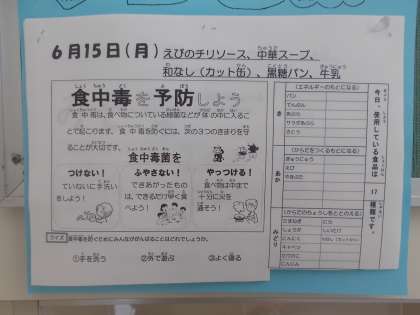 6月15日(月)えびのチリソース、中華スープ、
和なし(カット缶)、黒糖パン、牛乳
食中毒を予防しよう
食中毒は、食べ物についている細菌などが体の中に入るこ
とで起こります。食中毒を防ぐには、次の3つのきまりを守
ることが大切です。
食中毒菌を
つけない!
ていねいに手洗い
をしよう!
ふやさない!
できあがったもの
は、できるだけ早く食
べよう!
やっつける!
食べ物は中まで
十分に火を
通そう!
クイズ 食中毒を防ぐためにみんなができることはどれでしょうか。
①手を洗う ②外で遊ぶ ③よく寝る
今日、使用している食品は
17
種類です。
き
(エネルギーのもとになる)
パン
でんぷん
あぶら
サラダあぶら
さとう
あか
(からだをつくるもとになる)
ぎゅうにゅう
えび
みどり
(からだのちょうしをととのえる)
たまねぎ
しょうが
にんにく
キャベツ
にんじん